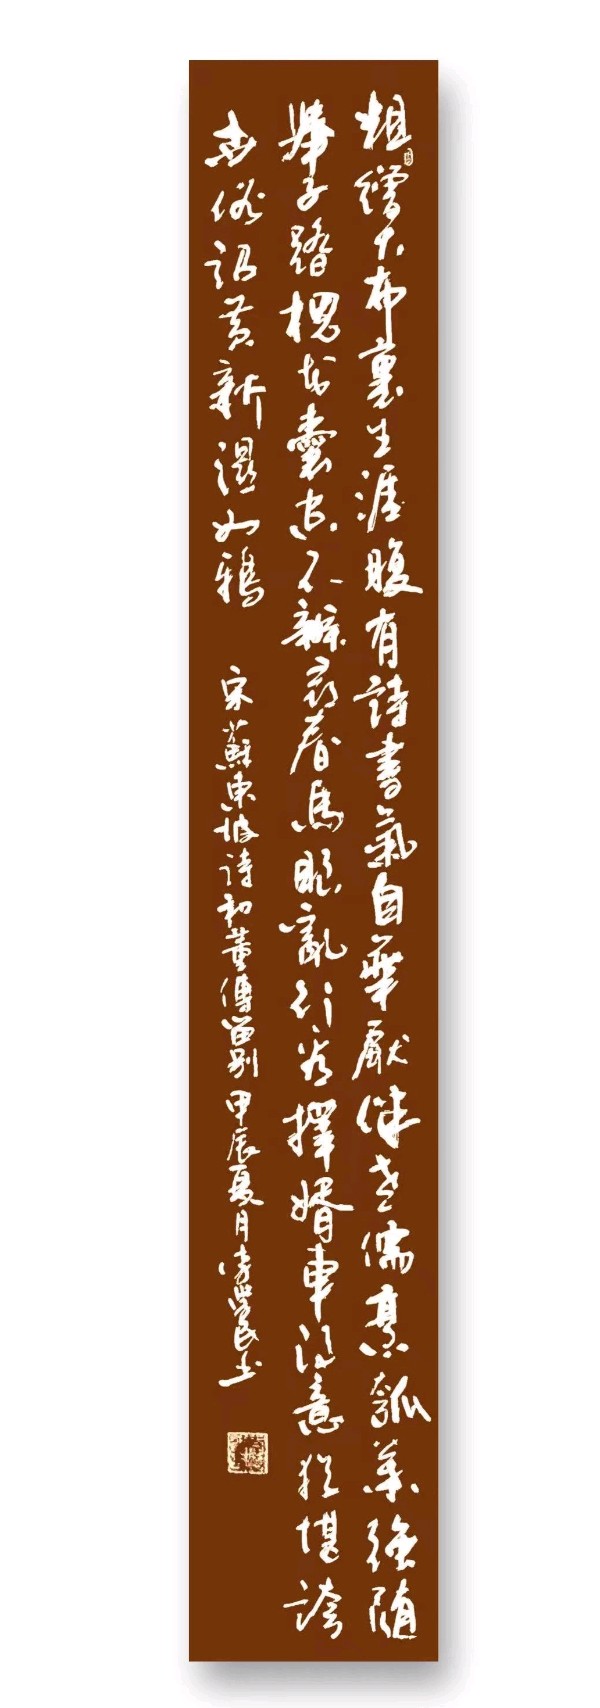 粗繒大布裹生涯腹有詩書氣自華厭伴老儒烹瓠葉強隨
舉子踏槐花囊空不辦尋春馬眼亂行看擇婿車得意猶堪誇
世俗詔黃新濕如鴉
宋蘇東坡詩和董傳留別 甲辰夏月